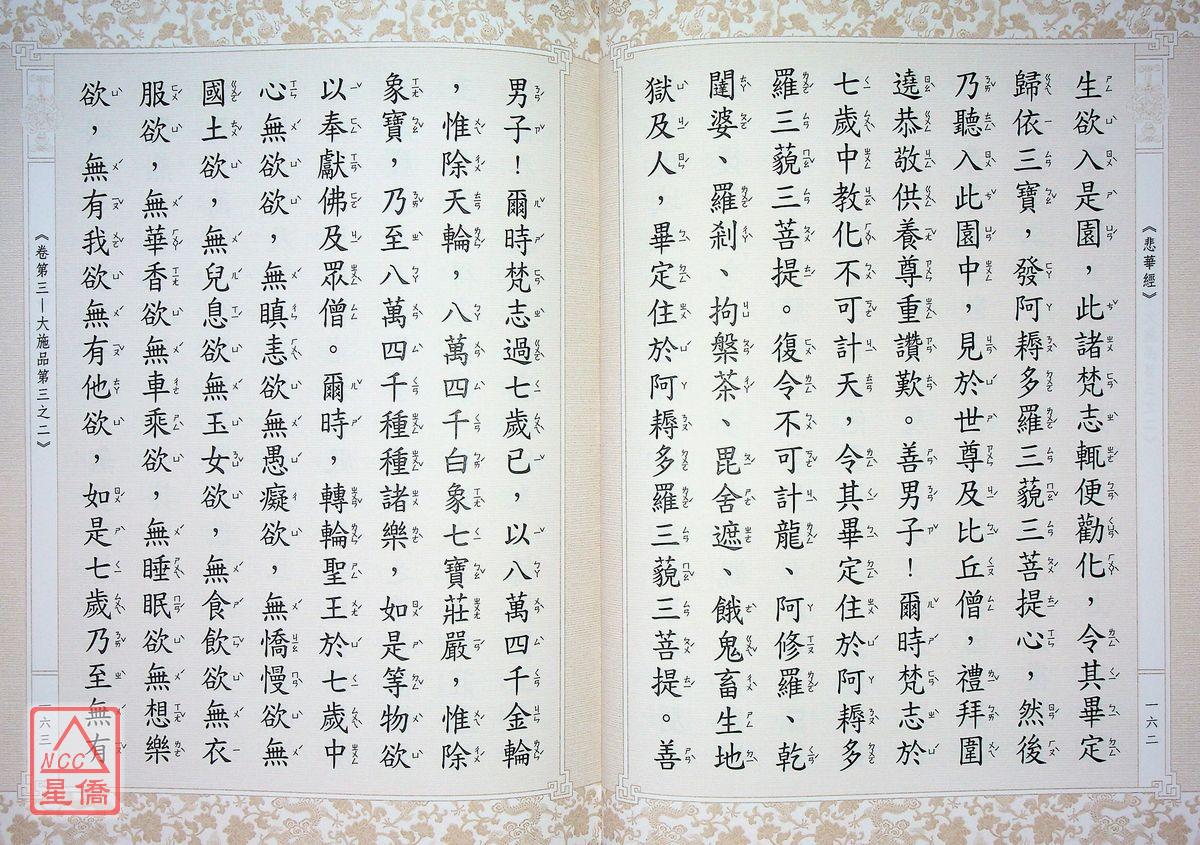 《悲華經》
一六二
生欲入是園，此諸梵志輒便勸化，令其畢定
歸依三寶，發阿耨多羅三藐三菩提心，然後
乃聽入此園中，見於世尊及比丘僧，禮拜圍
遶恭敬供養尊重讚歎。善男子！爾時梵志於
七歲中教化不可計天，令其畢定住於阿耨多
羅三藐三菩提。復令不可計龍、阿修羅、乾
闥婆、羅剎、拘槃茶、毘舍遮、餓鬼畜生地
獄及人，畢定住於阿耨多羅三藐三菩提。善
男子！爾時梵志過七歲已，以八萬四千金輪
，惟除天輪，八萬四千白象七寶莊嚴，惟除
象寶，乃至八萬四千種種諸樂，如是等物欲
以奉獻佛及眾僧。爾時，轉輪聖王於七歲中
心無欲欲，無瞋恚欲無愚癡欲，無憍慢欲無
國土欲，無兒息欲無玉女欲，無食飲欲無衣
服欲，無華香欲無車乘欲，無睡眠欲無想樂
欲，無有我欲無有他欲，如是七歲乃至無有
《卷第三－大施品第三之二》
一六三
NCC
星僑